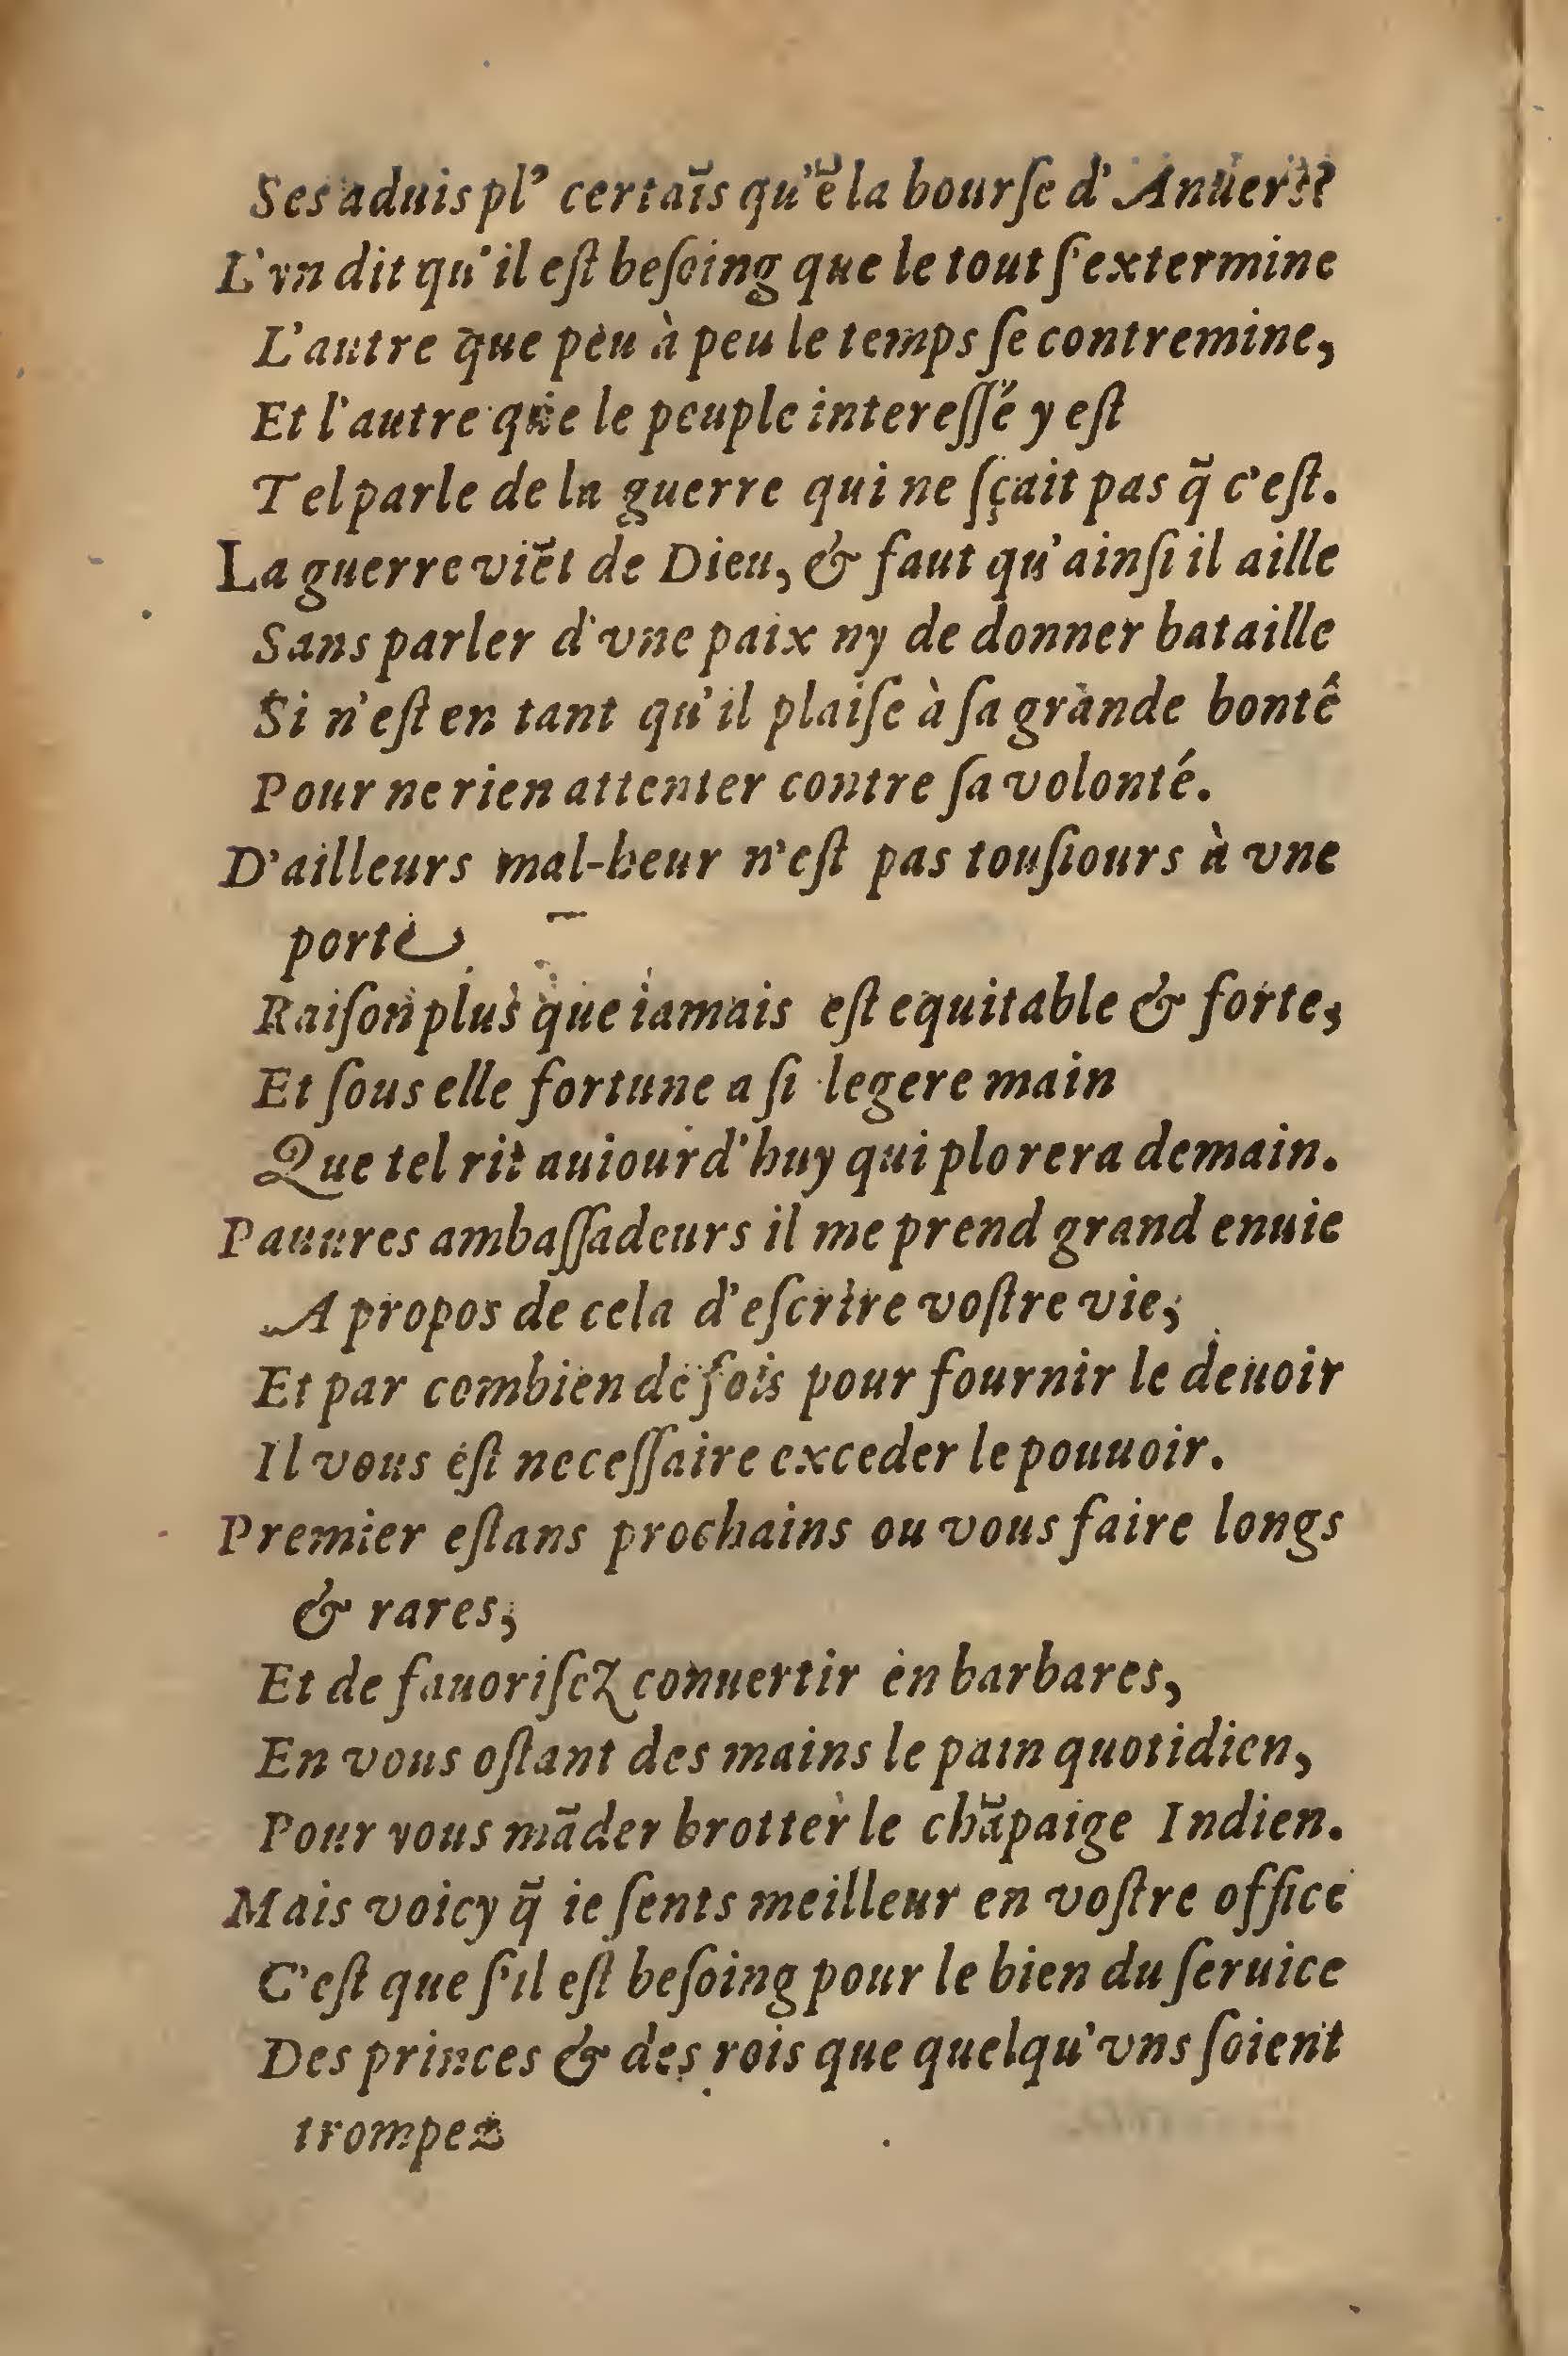 Ses aduis plꝰ certaĩs qu'ẽ la bourſe d'Anuers?
L'vn dit qu'il eſt beſoing que le tout ſ'extermine
L'autre que peu à peu le temps ſe contremine,
Et l'autre que le peuple intereſſé y eſt
Tel parle de la guerre qui ne ſçait pas q̃ c'eſt.
La guerre viẽt de Dieu, & faut qu'ainſi il aille
Sans parler d'vne paix ny de donner bataille
Si n'eſt en tant qu'il plaiſe à ſa grande bontê
Pour ne rien attenter contre ſa volonté.
D'ailleurs mal-heur n'eſt pas touſiours à vne
porte
Raiſon plus que iamais eſt equitable & forte,
Et ſous elle fortune a ſi legere main
Que tel rit auiourd'huy qui plorera demain.
Pauures ambaſſadeurs il me prend grand enuie
A propos de cela d'eſcrire voſtre vie,
Et par combien de fois pour fournir le deuoir
Il vous eſt neceſſaire exceder le pouuoir.
Premier eſtans prochains ou vous faire longs
& rares,
Et de fauoriſez conuertir en barbares,
En vous oſtant des mains le pain quotidien,
Pour vous mãder brotter le chãpaige Indien.
Mais voicy q̃ ie ſents meilleur en voſtre office
C'eſt que ſ'il eſt beſoing pour le bien du ſeruice
Des princes & des rois que quelqu'vns ſoient
trompez